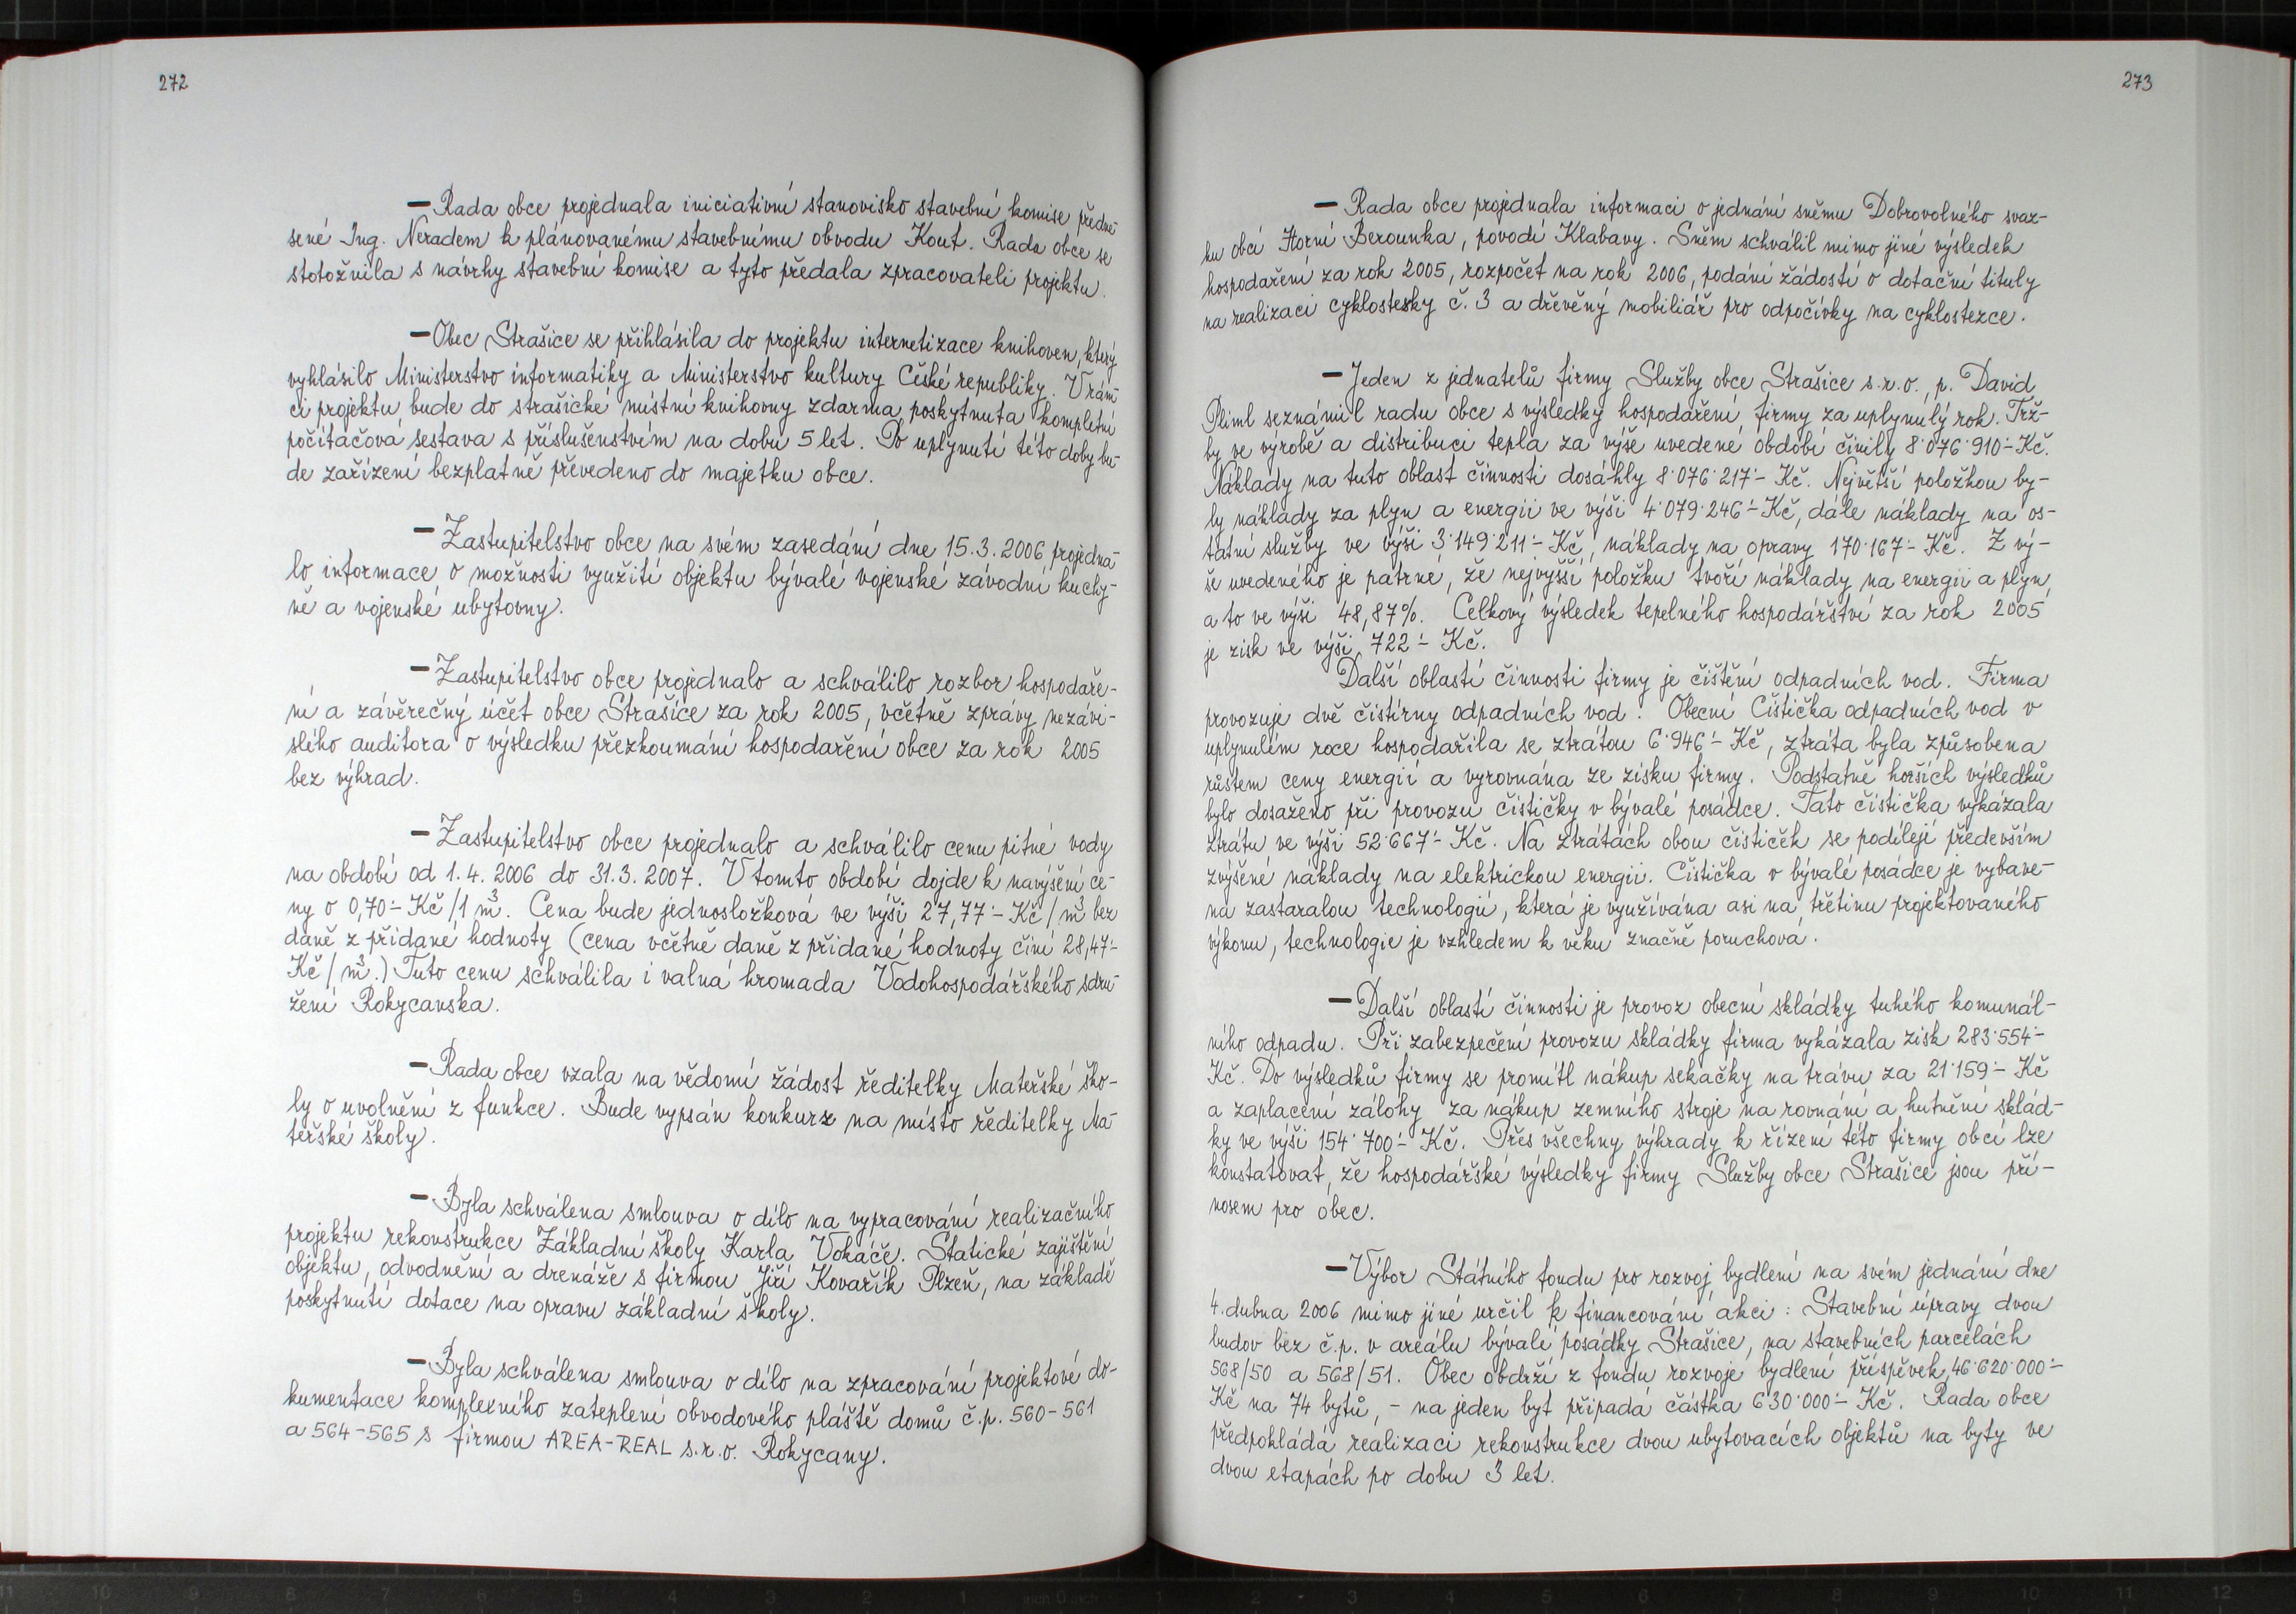 272
— Rada obce projednala iniciativní stanovisko stavební komise předne-
sené Ing. Neradem k plánovanému stavebnímu obvodu Kout. Rada obce se
stotožnila s návrhy stavební komise a tyto předala zpracovateli projektu.
— Obec Strašice se přihlásila do projektu internetizace knihoven, který
vyhlásilo Ministerstvo informatiky a Ministerstvo kultury České republiky. V rám-
ci projektu bude do strašické místní knihovny zdarma poskytnuta kompletní
počítačová sestava s příslušenstvím na dobu 5 let. Po uplynutí této doby bu-
de zařízení bezplatně převedeno do majetku obce.
— Zastupitelstvo obce na svém zasedání dne 15.3.2006 projedna-
lo informace o možnosti využití objektu bývalé vojenské závodní kuchy-
ně a vojenské ubytovny.
— Zastupitelstvo obce projednalo a schválilo rozbor hospodaře-
ní a závěrečný účet obce Strašice za rok 2005, včetně zprávy nezávi-
slého auditora o výsledku přezkoumání hospodaření obce za rok 2005
bez výhrad.
— Zastupitelstvo obce projednalo a schválilo cenu pitné vody
na období od 1.4.2006 do 31.3.2007. V tomto období dojde k navýšení ce-
ny o 0,70-- Kč/1 m³. Cena bude jednosložková ve výši 27,77-- Kč/m³ bez
daně z přidané hodnoty (cena včetně daně z přidané hodnoty činí 28,47--
Kč/m³.) Tuto cenu schválila i valná hromada Vodohospodářského sdru-
žení Rokycanska.
— Rada obce vzala na vědomí žádost ředitelky Mateřské ško-
ly o uvolnění z funkce. Bude vypsán konkurz na místo ředitelky Ma-
teřské školy.
— Byla schválena smlouva o dílo na vypracování realizačního
projektu rekonstrukce Základní školy Karla Vokáče. Statické zajištění
objektu, odvodnění a drenáže s firmou Jiří Kovařík Plzeň, na základě
poskytnutí dotace na opravu základní školy.
— Byla schválena smlouva o dílo na zpracování projektové do-
kumentace komplexního zateplení obvodového pláště domů č.p. 560-561
a 564-565 s firmou AREA-REAL s.r.o. Rokycany.
273
— Rada obce projednala informaci o jednání sněmu Dobrovolného svaz-
ku obcí Horní Berounka, povodí Klabavy. Sněm schválil mimo jiné výsledek
hospodaření za rok 2005, rozpočet na rok 2006, podání žádostí o dotační tituly
na realizaci cyklostezky č. 3 a dřevěný mobiliář pro odpočívky na cyklostezce.
— Jeden z jednatelů firmy Služby obce Strašice s.r.o., p. David
Pliml seznámil radu obce s výsledky hospodaření firmy za uplynulý rok. Trž-
by ve výrobě a distribuci tepla za výše uvedené období činily 8˙076˙910-- Kč.
Náklady na tuto oblast činnosti dosáhly 8˙076˙217-- Kč. Největší položkou by-
ly náklady za plyn a energii ve výši 4˙079˙246-- Kč, dále náklady na os-
tatní služby ve výši 3˙149˙211-- Kč, náklady na opravy 170˙167-- Kč. Z vý-
še uvedeného je patrné, že nejvyšší položku tvoří náklady na energii a plyn,
a to ve výši 48,87%. Celkový výsledek tepelného hospodářství za rok 2005
je zisk ve výši 722-- Kč.
Další oblastí činnosti firmy je čištění odpadních vod. Firma
provozuje dvě čistírny odpadních vod. Obecní Čistička odpadních vod v
uplynulém roce hospodařila se ztrátou 6˙946-- Kč, ztráta byla způsobena
růstem ceny energií a vyrovnána ze zisku firmy. Podstatně horších výsledků
bylo dosaženo při provozu čističky v bývalé posádce. Tato čistička vykázala
ztrátu ve výši 52˙667-- Kč. Na ztrátách obou čističek se podílejí především
zvýšené náklady na elektrickou energii. Čistička v bývalé posádce je vybave-
na zastaralou technologií, která je využívána asi na třetinu projektovaného
výkonu, technologie je vzhledem k věku značně poruchová.
— Další oblastí činnosti je provoz obecní skládky tuhého komunál-
ního odpadu. Při zabezpečení provozu skládky firma vykázala zisk 283˙554--
Kč. Do výsledků firmy se promítl nákup sekačky na trávu za 21˙159-- Kč
a zaplacení zálohy za nákup zemního stroje na rovnání a hutnění sklád-
ky ve výši 154˙700-- Kč. Přes všechny výhrady k řízení této firmy obcí lze
konstatovat, že hospodářské výsledky firmy Služby obce Strašice jsou pří-
nosem pro obec.
— Výbor Státního fondu pro rozvoj bydlení na svém jednání dne
4. dubna 2006 mimo jiné určil k financování akci: Stavební úpravy dvou
budov bez č.p. v areálu bývalé posádky Strašice, na stavebních parcelách
568/50 a 568/51. Obec obdrží z fondu rozvoje bydlení příspěvek 46˙620˙000--
Kč na 74 bytů, - na jeden byt připadá částka 630˙000-- Kč. Rada obce
předpokládá realizaci rekonstrukce dvou ubytovacích objektů na byty ve
dvou etapách po dobu 3 let.